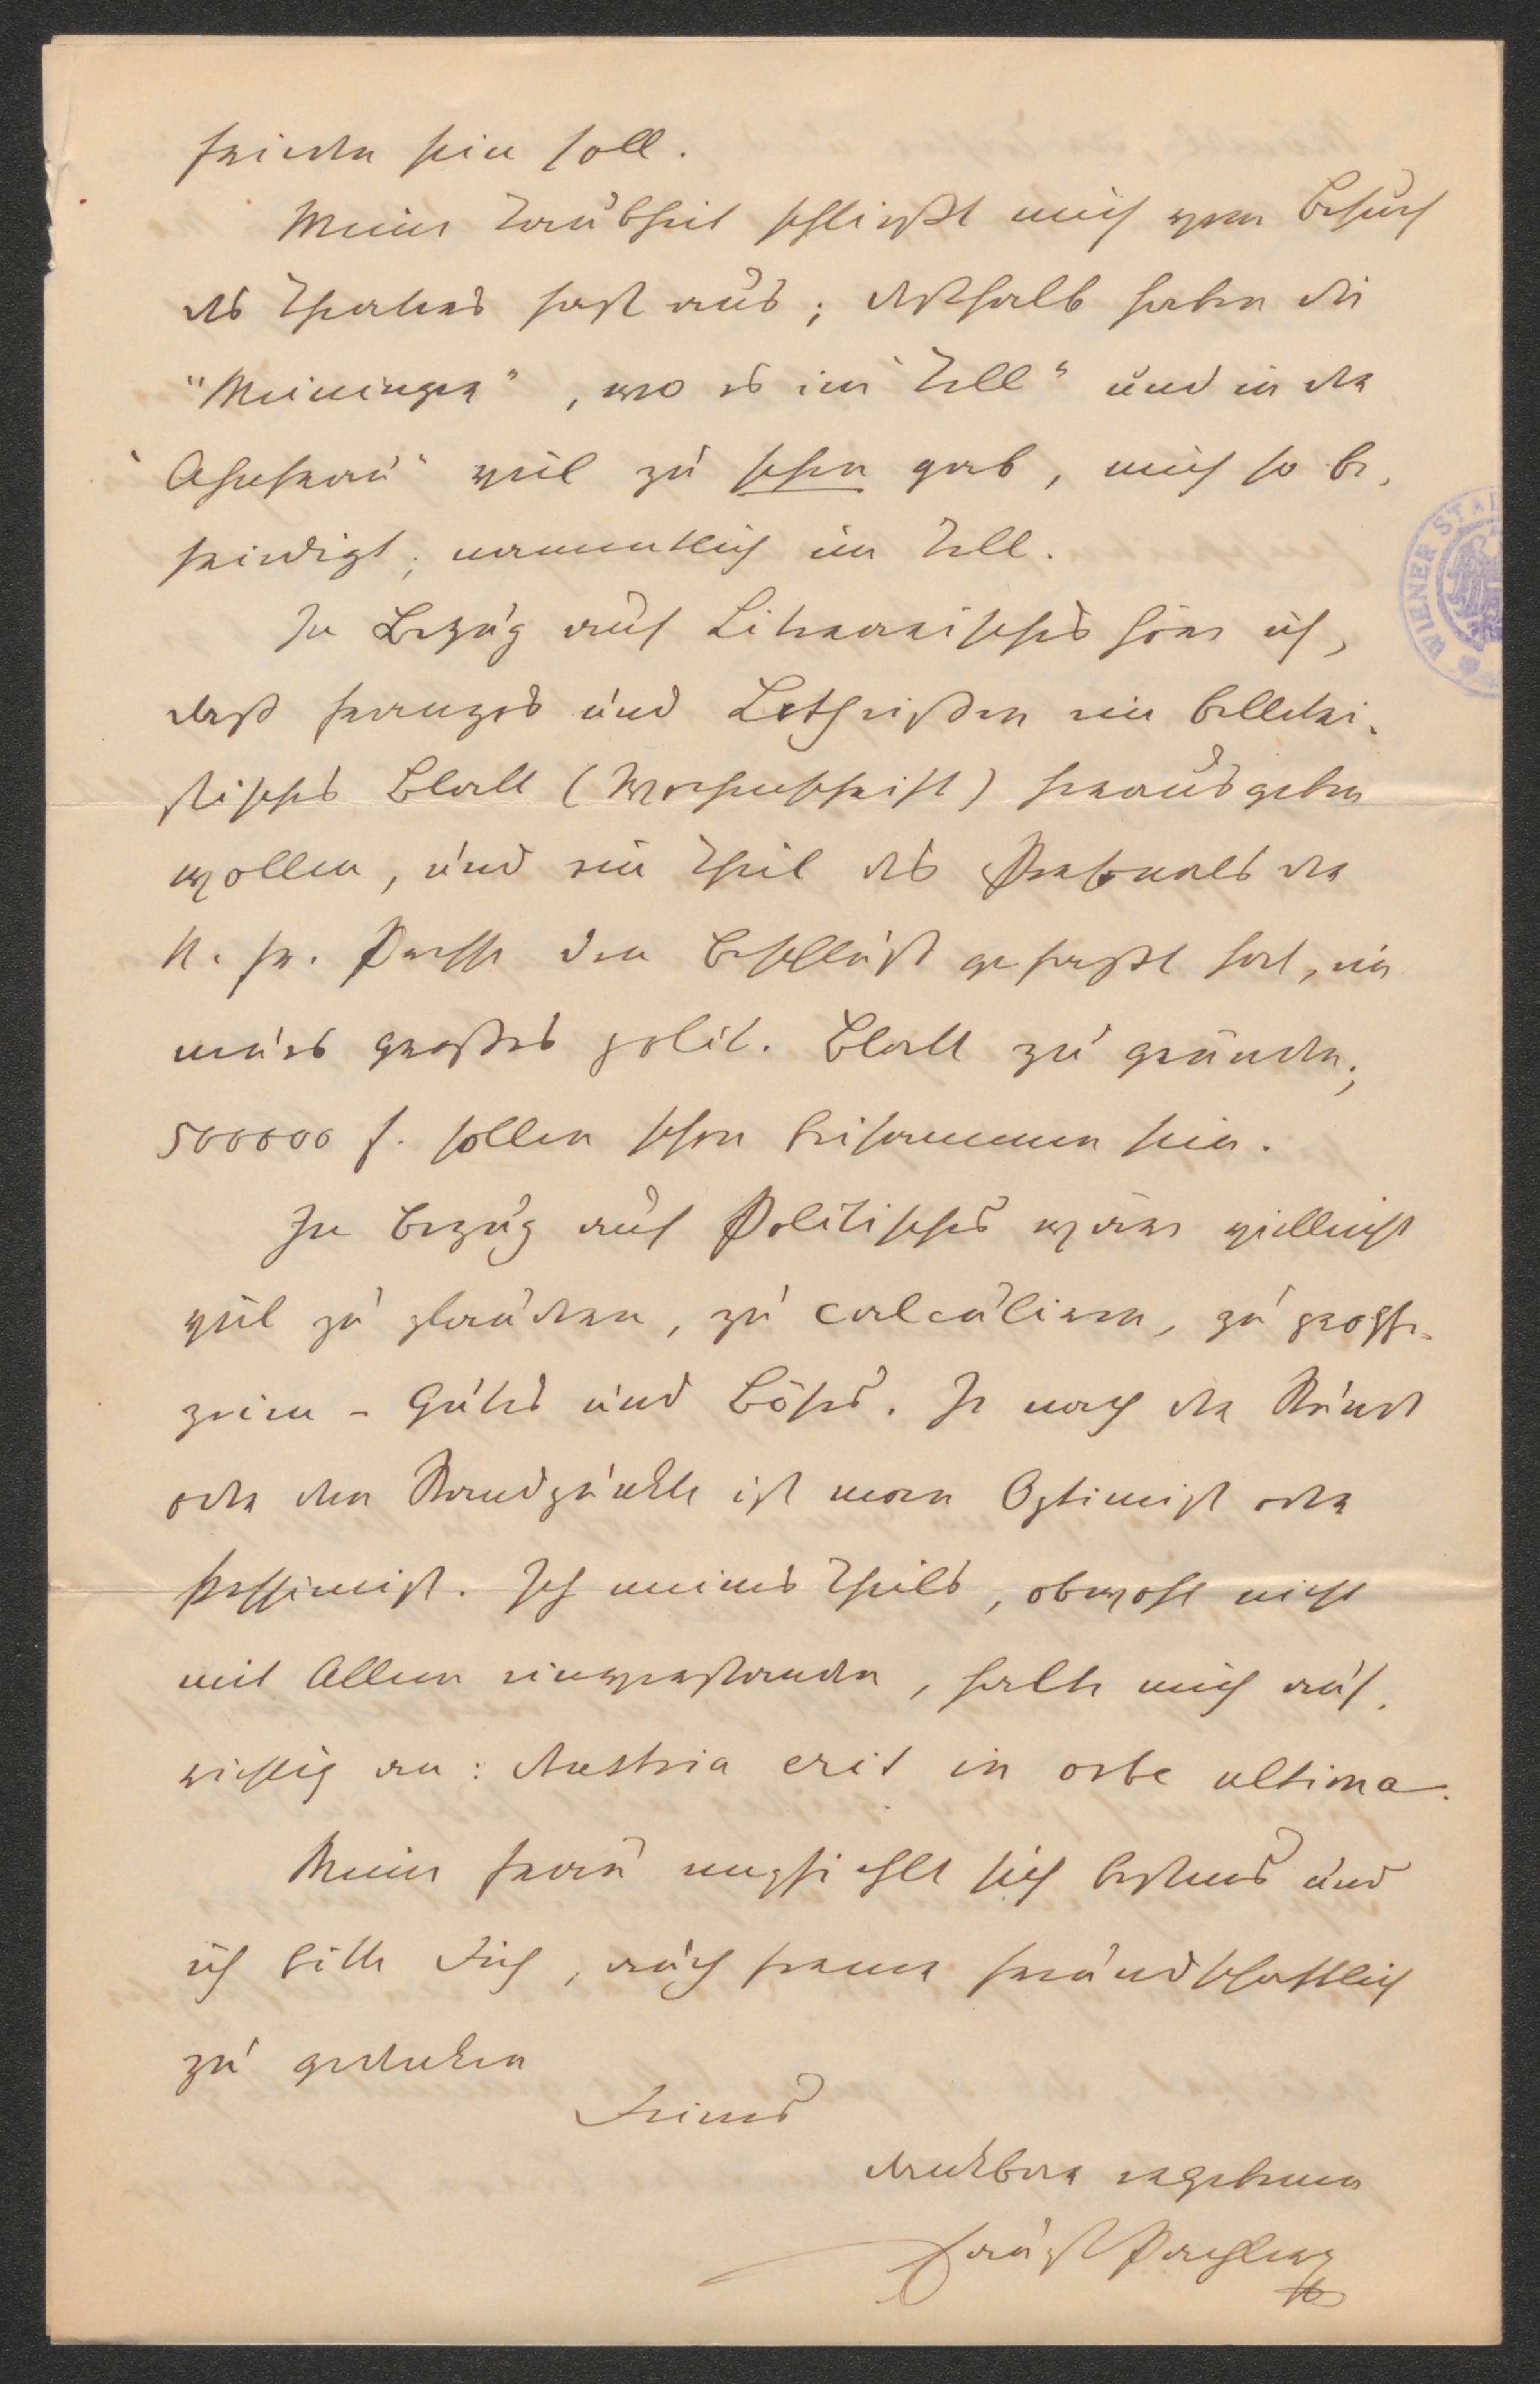 frieden sein soll.
Meine Taubheit schließt mich vom Besuch
des Theaters fast aus; deßhalb haben die
"Meininger", wo es im "Tell" und in der
"Ahnfrau" viel zu sehen gab, mich so be-
friedigt; namentlich im Tell.
In Bezug auf Literarisches höre ich,
daß Franzos und Lotheißen ein belletri-
stisches Blatt (Wochenschrift) herausgeben
wollen, und ein Theil des Personals der
N. fr. Presse den Beschluß gefaßt hat, ein
neues großes polit. Blatt zu gründen;
500000 f. sollen schon beisammen sein.
In Bezug auf Politisches wäre vielleicht
viel zu plaudern, zu calculiren, zu prophe-
zeien - Gutes und Böses. Je nach der Stunde
oder dem Standpunkte ist man Optimist oder
Pessimist. Ich meines Theils, obwohl nicht
mit Allem einverstanden, halte mich auf-
richtig an: Austria erit in orbe ultima.
Meine Frau empfiehlt sich bestens und
ich bitte Dich, auch ferner freundschaftlich
zu gedenken
Deines
dankbar ergebenen
Faust Pachler
WIENER STAD